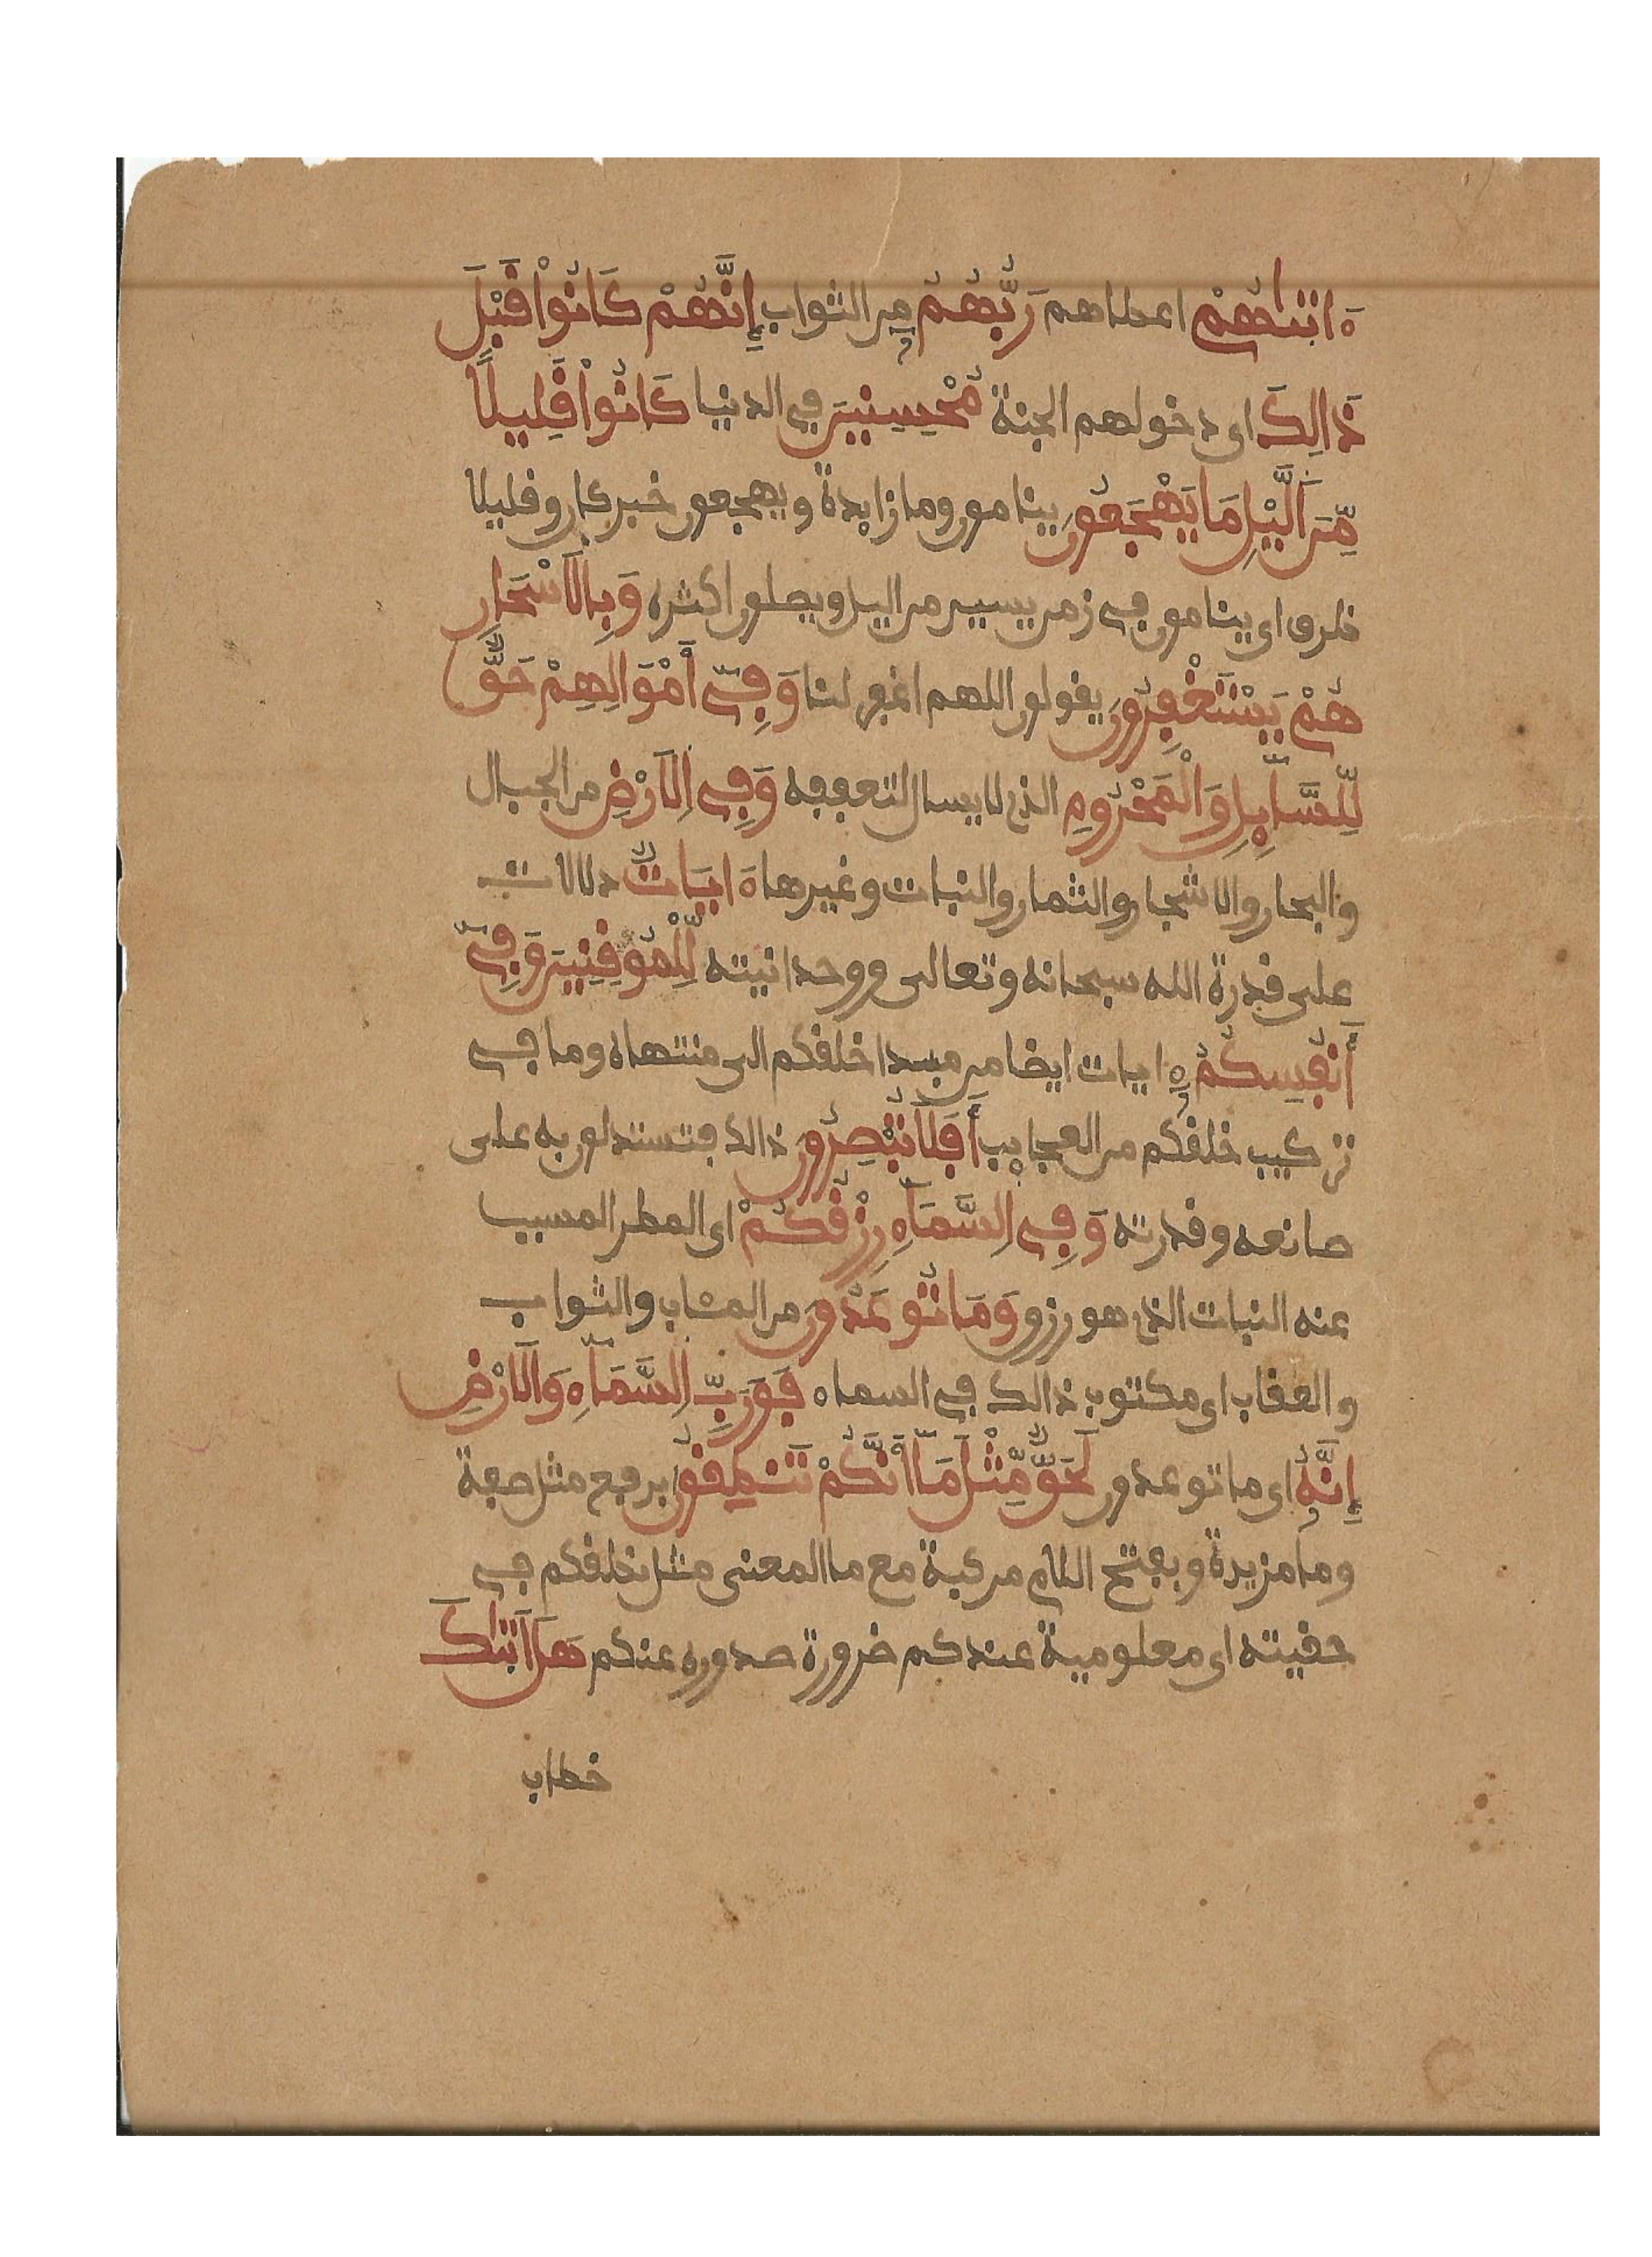 ءاتىٰهُمْ اعطاهم رَبُّهُمْ من الثواب إِنَّهُمْ كَانُواْ قَبْلَ
ذَالِكَ اى دخولهم الجنة مُحْسِنِينَ في الدنيا كَانُواْ قَلِيلًا
مِّنَ اَلَّيْلِ مَا يَهْجَعُونَ ينامون وما زايدة ويهجعون خبر كان وقليلا
ظرف اى ينامون في زمن يسير من اليل ويصلون اكثره وَبِالَاسْحَارِ
هُمْ يَسْتَغْفِرُونَ يقولون اللهم اغفر لنا وَفِىٓ أَمْوَالِهِمْ حَقٌّ
لِّلسَّآيِلِ وَالْمَحْرُومِ الذى لا يسال لتعففه وَفِى اِلَارْضِ من الجبال
والبحار والاشجار والثمار والنبات وغيرها ءَايَاتٌ دلالات
على قدرة الله سبحانه وتعالى ووحدانيته لِّلْمُوقِنِينَ وَفِىٓ
أَنفُسِكُمْ ءايات ايضا من مبدا خلقكم الى منتهاه وما في
تركيب خلقكم من العجايب أَفَلَا تُبْصِرُونَ ذالك فتستدلون به على
صانعه وقدرته وَفِى اِلسَّمَآءِ رِزْقُكُمْ اى المطر المسبب
عنه النبات الذى هو رزق وَمَا تُوعَدُونَ من المئاب والثواب
والعقاب اى مكتوب ذالك في السماء فَوَرَبِّ اِلسَّمَآءِ وَالَارْضِ
إِنَّهُ اى ما توعدون لَحَقٌّ مِّثْلَ مَآ أَنَّكُمْ تَنطِقُونَ برفع مثل صفة
وما مزيدة وبفتح اللام مركبة مع ما المعنى مثل نطقكم في
حقيته اى معلوميته عندكم ضرورة صدوره عنكم هَلَ اَتىٰكَ
خطاب